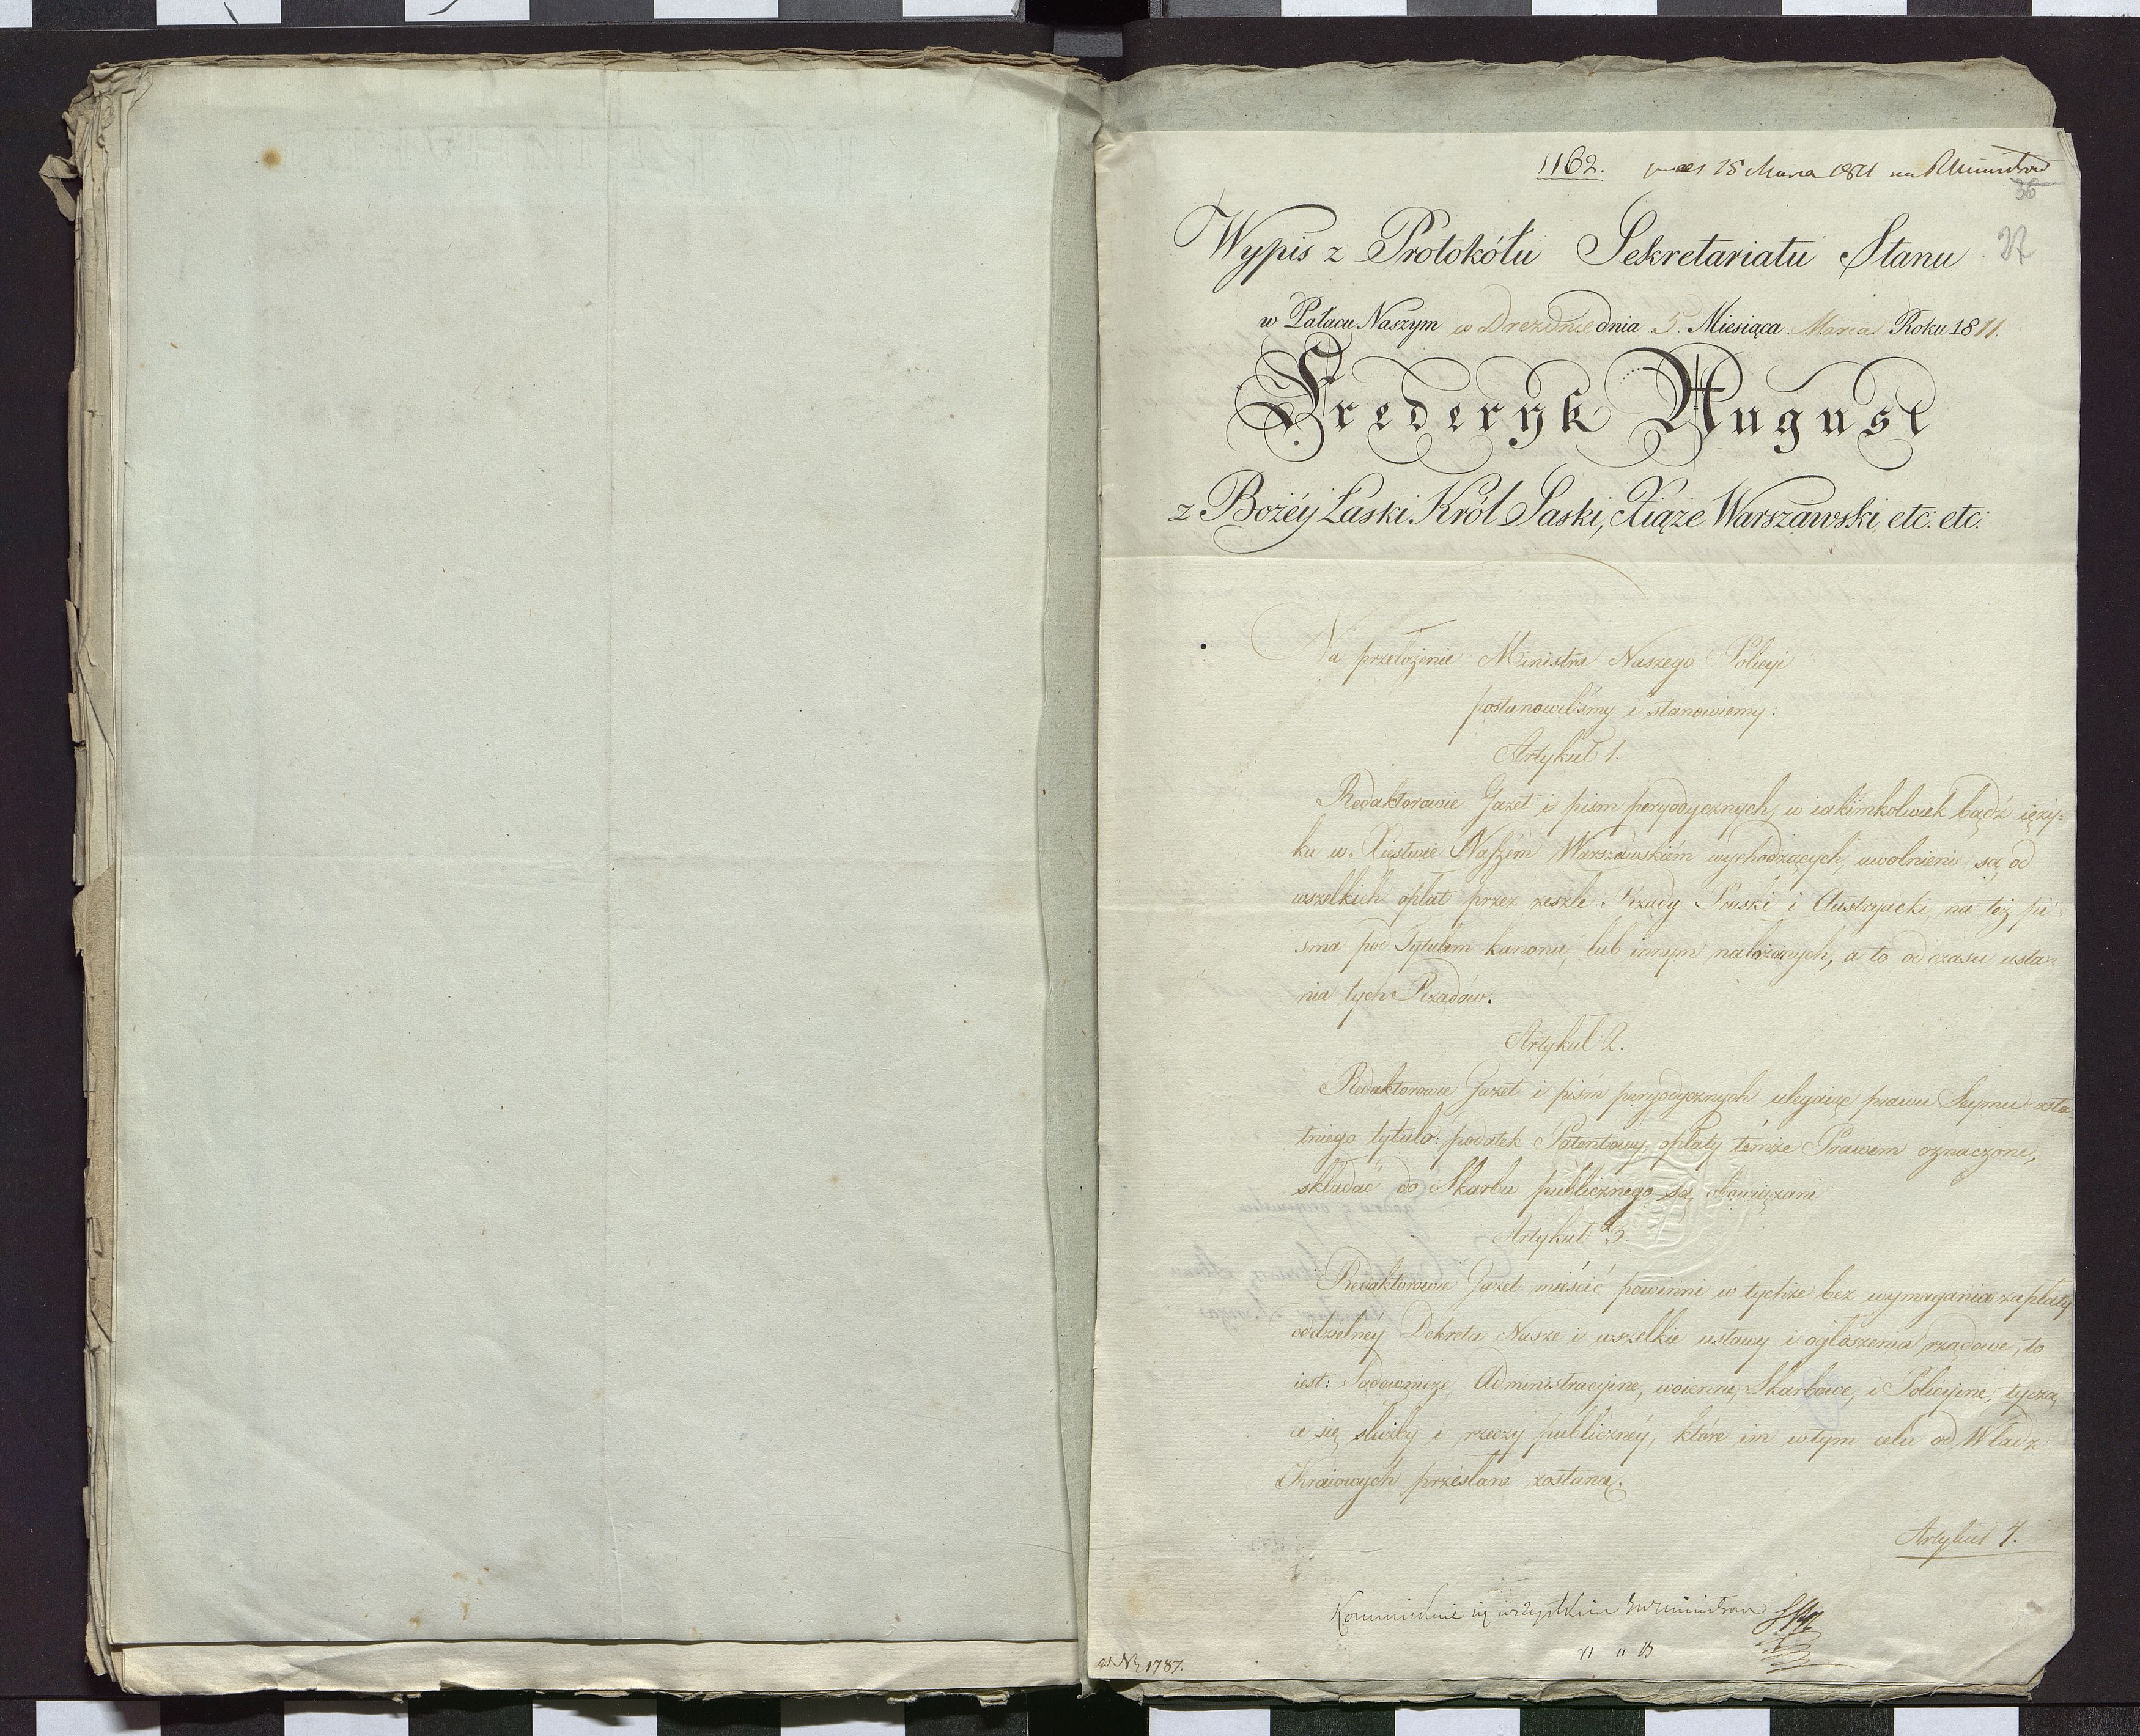 1162. 15 Marca 1811 na R Ministrów
36
27
Wypis z Protokółu Sekretariatu Stanu
w Pałacu Naszym w Dreznie dnia 5. Miesiąca Marca Roku 1811.
Frederyk August
z Bożéy Łaski Król Saski, Xiąże Warszawski, etc: etc:
Na przełożenie Ministra Naszego Policyi
postanowiliśmy i stanowiemy:
Artykuł 1.
Redaktorowie Gazet i pism peryodycznych, w iakimkolwiek bądź ięzy=
ku w Xięstwie Naszém Warszawskiém wychodzących, uwolnieni są od
wszelkich opłat przez zeszłe Rządy Pruski i Austryacki, na też pi=
sma pod Tytułem kanonu, lub innym nałożonych, a to od czasu usta=
nia tych Rządów.
Artykuł 2.
Redaktorowie Gazet i pism peryodycznych ulegaiąc prawu Seymu osta
tniego tytuło: podatek Patentowy, opłaty témże Prawem oznaczone,
składać do Skarbu publicznego są obowiązani
Artykuł 3.
Redaktorowie Gazet mieścić powinni w tychże bez wymagania zapłaty
oddzielney Dekreta Nasze i wszelkie ustawy i ogłoszenia rządowe, to
iest: Sądownicze, Administracyine, woienne, Skarbowe, i Policyine, tyczą
ce się służby i rzeczy publicznéy, które im w tym celu od Władz
Kraiowych przesłane zostaną.
Artykuł 4.
się wszystkim
ad Nr 1787.